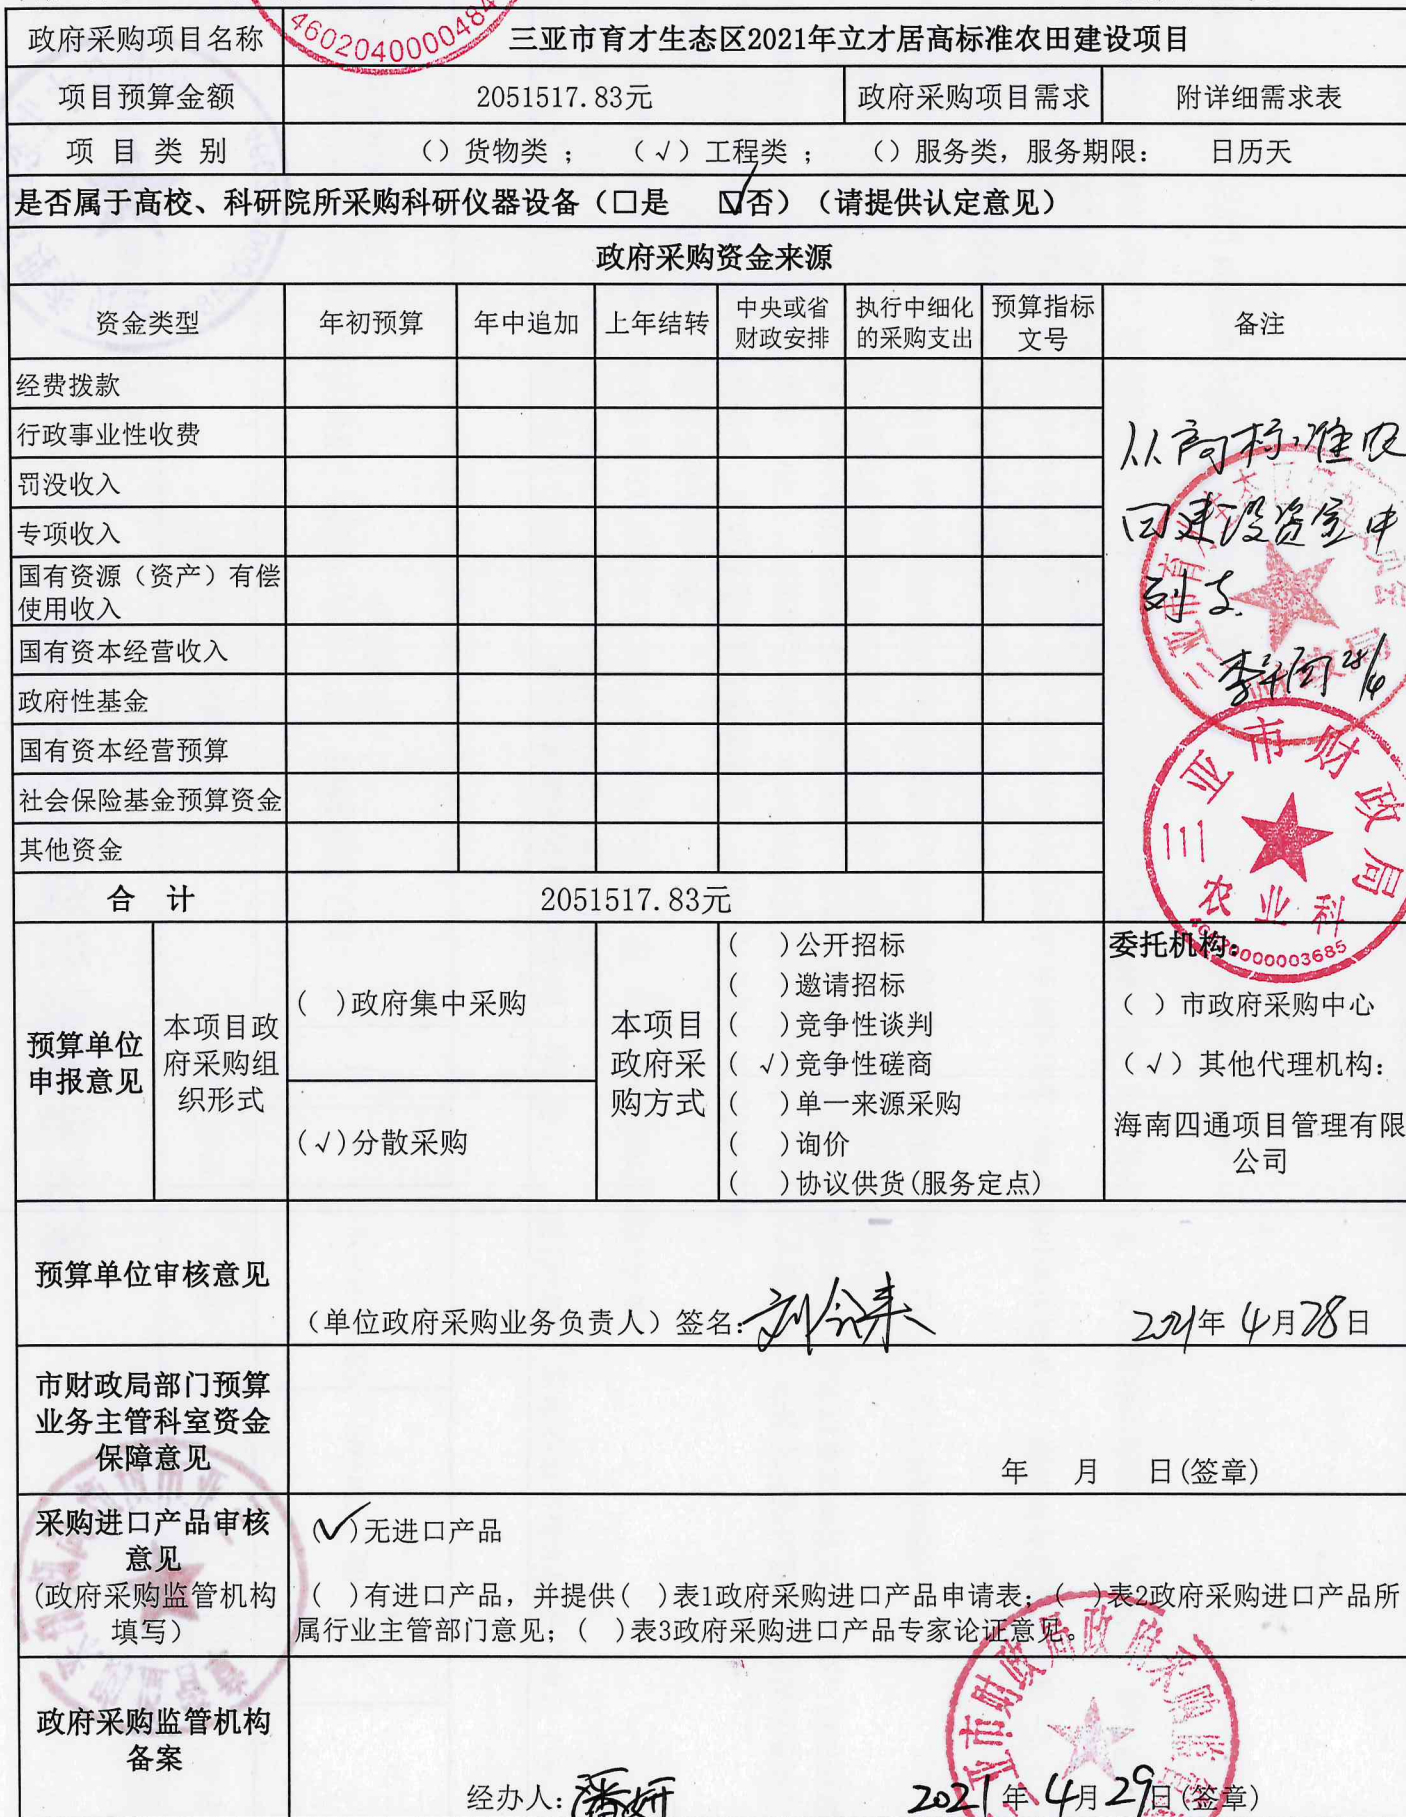 4602040000484
政府采购项目名称 三亚市育才生态区2021年立才居高标准农田建设项目
项目预算金额 2051517.83元 政府采购项目需求 附详细需求表
项 目 类 别 （）货物类 ； （√）工程类 ； （）服务类，服务期限： 日历天
是否属于高校、科研院所采购科研仪器设备（□是 ☑否）（请提供认定意见）
政府采购资金来源
资金类型 年初预算 年中追加 上年结转 中央或省财政安排 执行中细化的采购支出 预算指标文号 备注
经费拨款
行政事业性收费
罚没收入
专项收入
国有资源（资产）有偿
使用收入
国有资本经营收入
政府性基金
国有资本经营预算
社会保险基金预算资金
其他资金
从高标准农
田建设资金中
列支.
28/4
三亚市财政局
农业科
46020000003685
合 计 2051517.83元
预算单位
申报意见
本项目政
府采购组
织形式
( )政府集中采购
(√)分散采购
本项目
政府采
购方式
( )公开招标
( )邀请招标
( )竞争性谈判
( √)竞争性磋商
( )单一来源采购
( )询价
( )协议供货(服务定点)
委托机构：
（ ）市政府采购中心
（√）其他代理机构：
海南四通项目管理有限
公司
预算单位审核意见
（单位政府采购业务负责人）签名： 2021年 4月28日
市财政局部门预算
业务主管科室资金
保障意见
年 月 日(签章)
采购进口产品审核
意见
(政府采购监管机构
填写）
(✓)无进口产品
( )有进口产品，并提供( )表1政府采购进口产品申请表；( )表2政府采购进口产品所
属行业主管部门意见；( )表3政府采购进口产品专家论证意见。
政府采购监管机构
备案
经办人：潘妍 2021年 4月29日(签章)